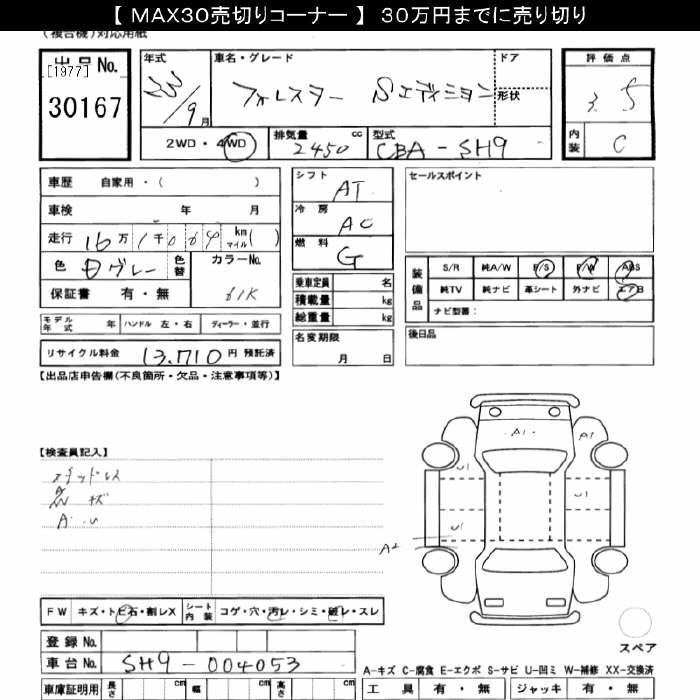 【 MAX30売切りコーナー 】 30万円までに売り切り
(複合機)対応用紙
出品No.
[1977]
30167
年式
23/9月
車名・グレード
フォレスター Sエディション
ドア
形状
評価点
3.5
内装
C
2WD・4WD
排気量 cc
2450
型式
CBA-SH9
車歴 自家用・( )
車検 年 月
走行 16万1千064 km マイル( )
色 Dグレー 色替
カラーNo.
61K
保証書 有・無
シフト
AT
冷房
AC
燃料
G
セールスポイント
装備品
S/R 純A/W P/S P/W ABS
純TV 純ナビ 革シート 外ナビ エアB
ナビ型番:
乗車定員 名
積載量 kg
総重量 kg
モデル年式 年 ハンドル 左・右 ディーラー・並行
名変期限
月 日
後日品
リサイクル料金 13,710 円 預託済
【出品店申告欄(不良箇所・欠品・注意事項等)】
【検査員記入】
スタッドレス
キズ
A・U
A1
A1
U1
U1
U1
A2
FW キズ・トビ石・割レX
シート内装 コゲ・穴・汚レ・シミ・破レ・スレ
スペア
登録No.
車台No. SH9-004053
A-キズ C-腐食 E-エクボ S-サビ U-凹ミ W-補修 XX-交換済
車庫証明用 長さ cm 幅 cm 高さ cm
工具 有・無 ジャッキ 有・無